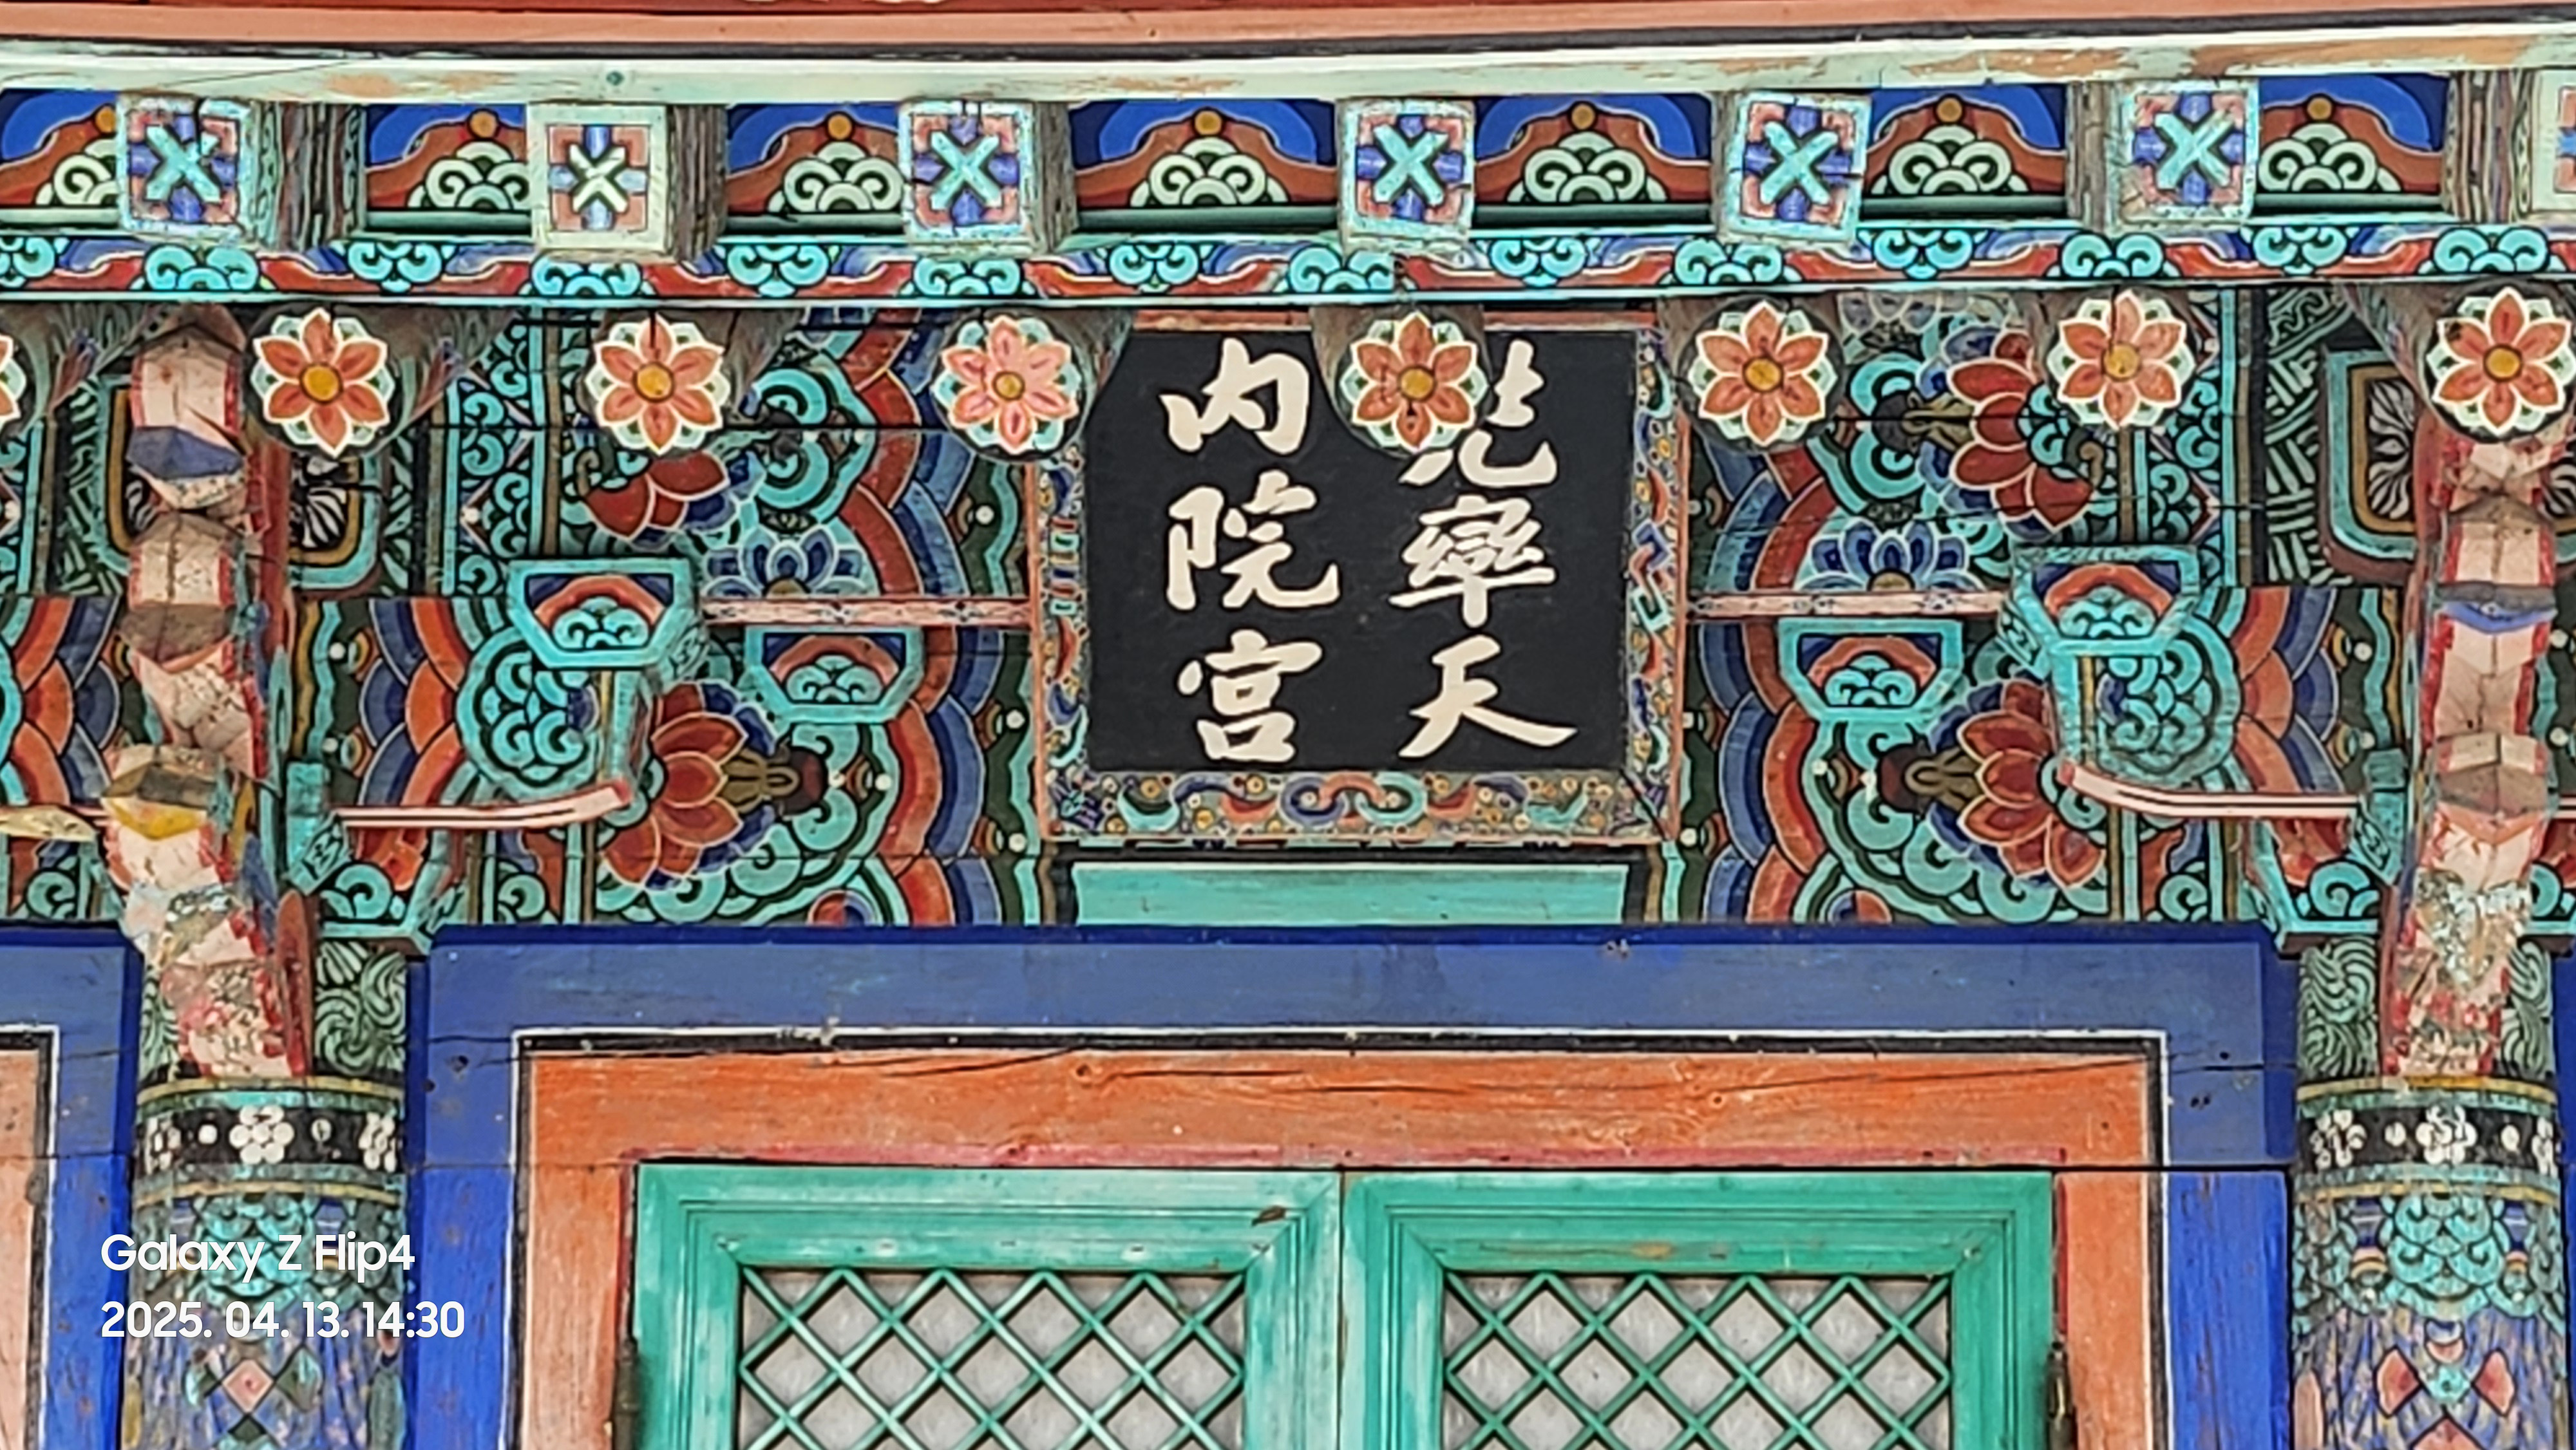 兜率天
内院宮
Galaxy Z Flip4
2025. 04. 13. 14:30